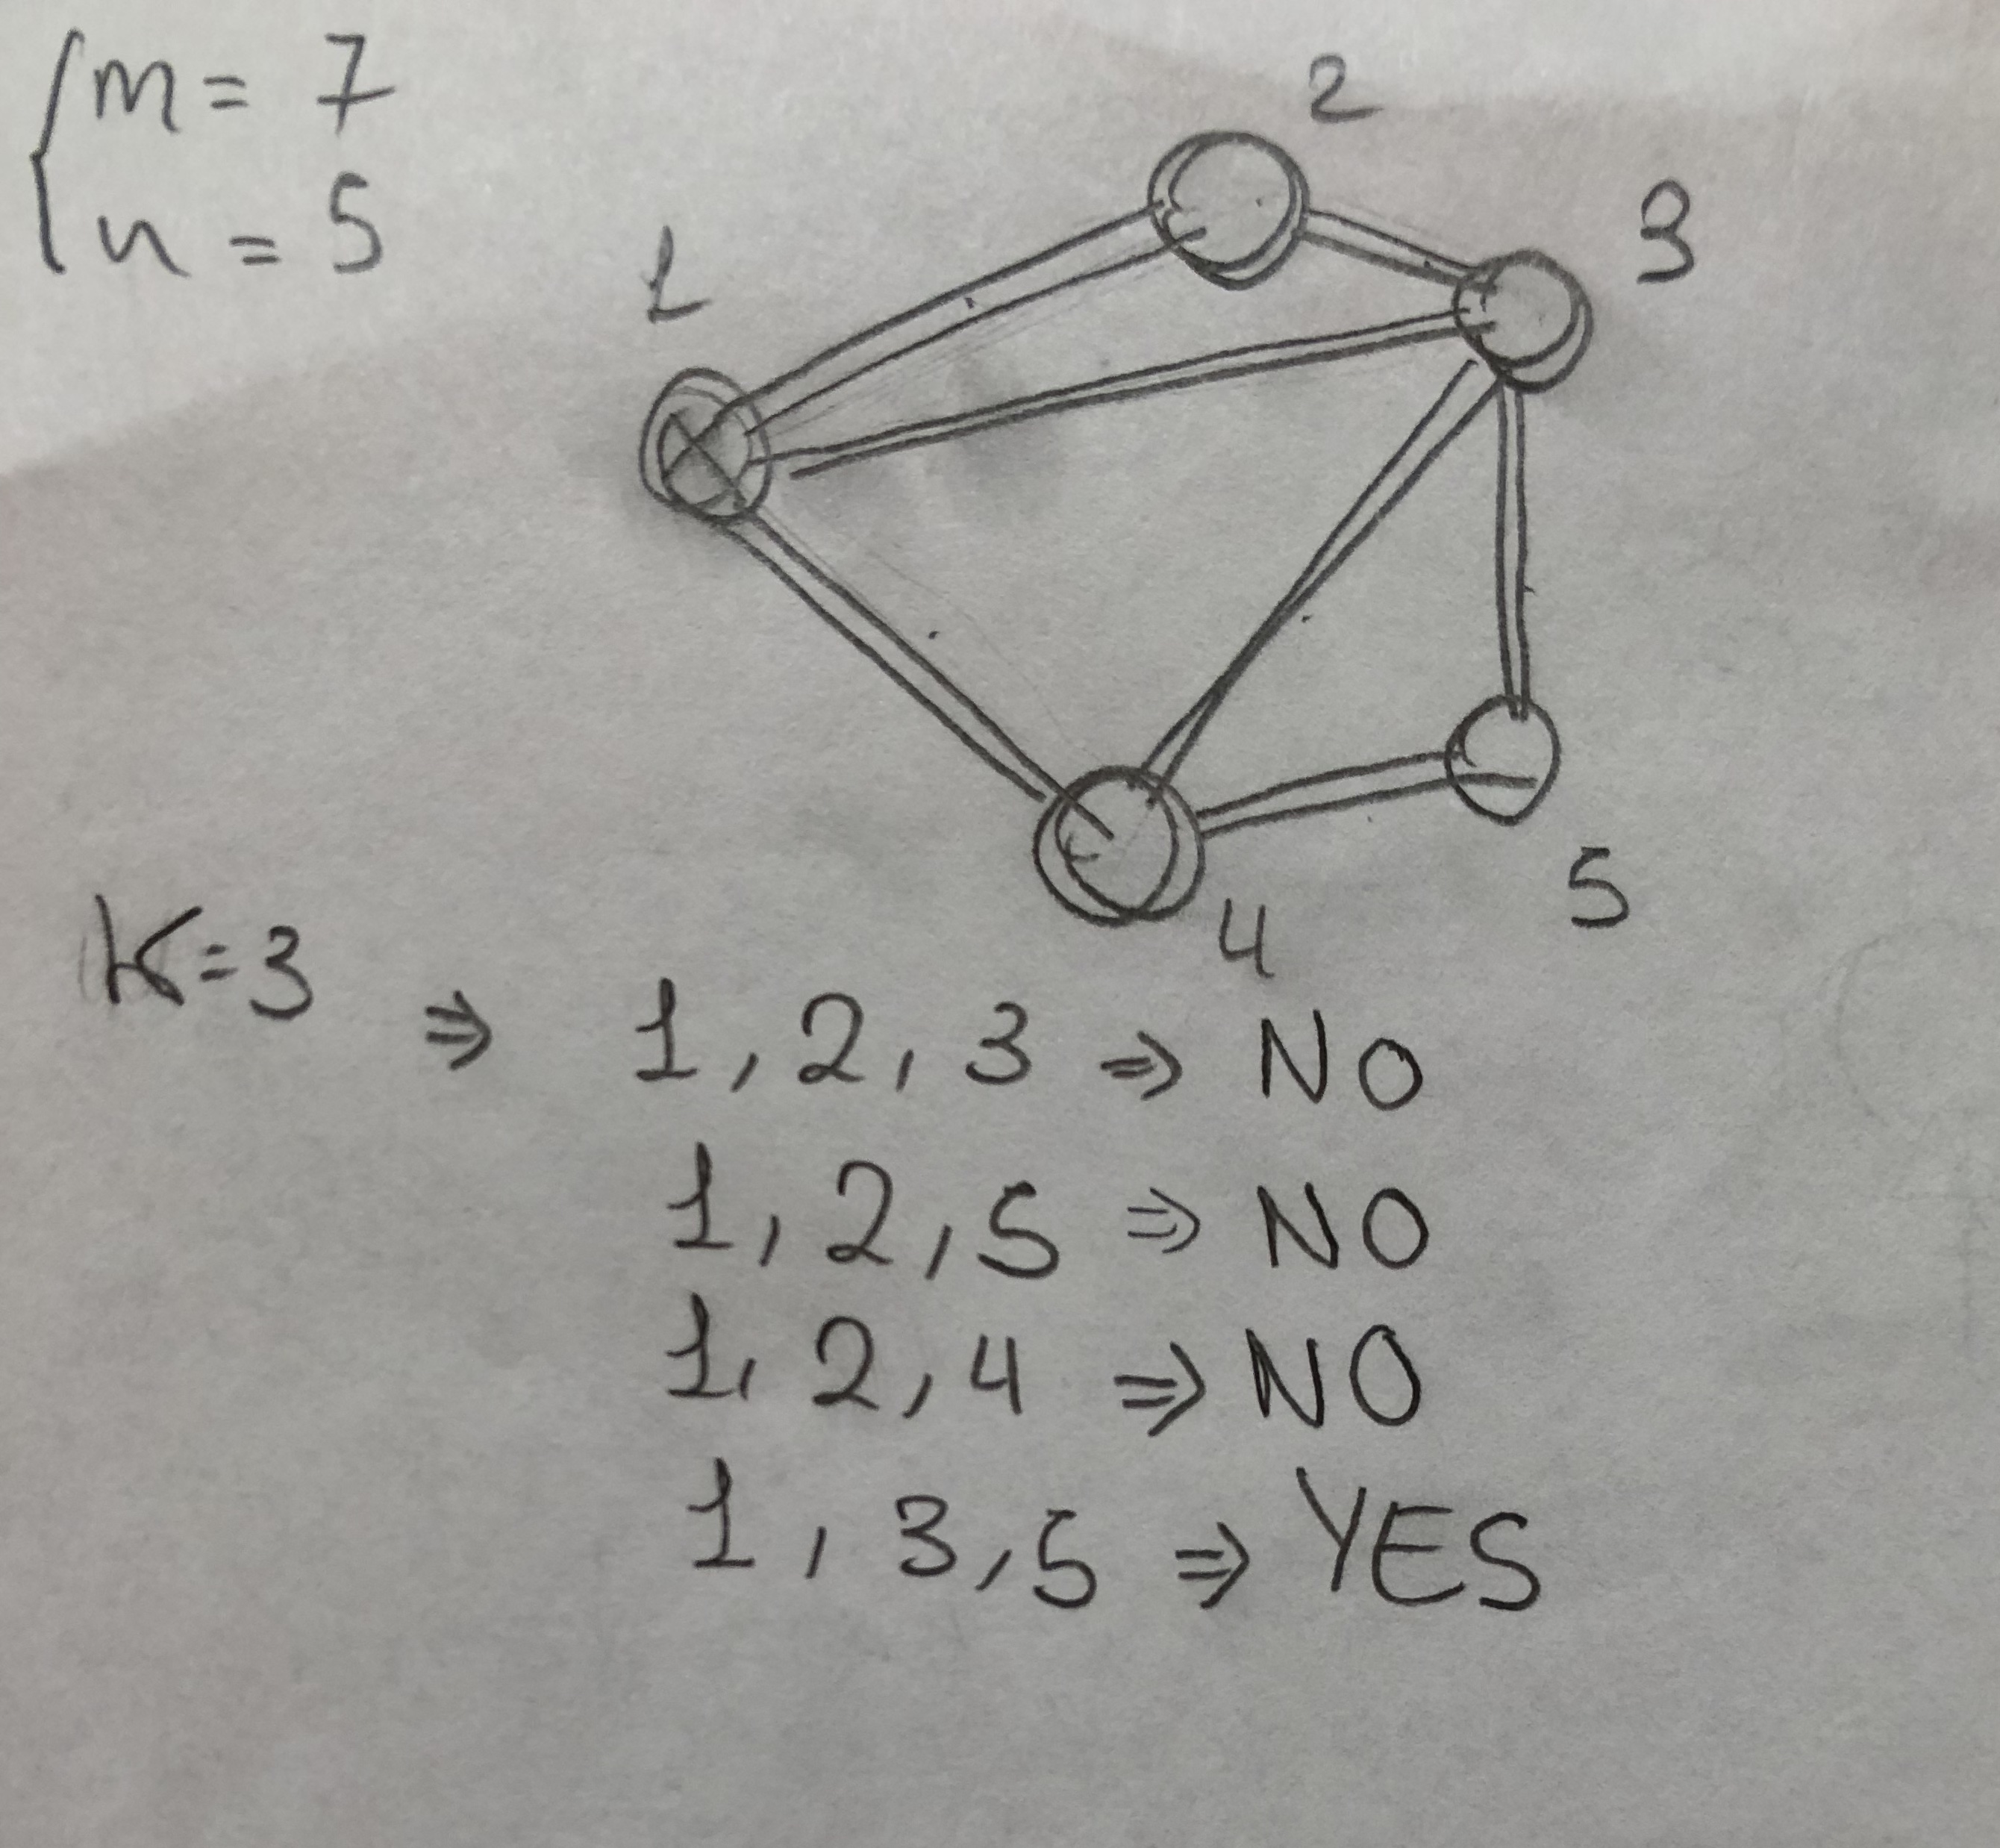 m = 7
n = 5
1
2
3
4
5
K=3 ⇒ 1, 2, 3 ⇒ NO
1, 2, 5 ⇒ NO
1, 2, 4 ⇒ NO
1, 3, 5 ⇒ YES